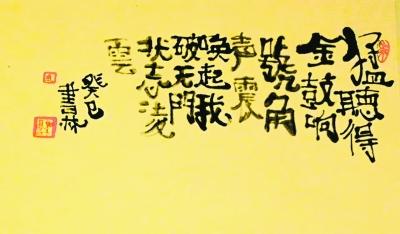 猛聽得
金鼓响
號角
声震
唤起我
破天門
壮志凌
雲
癸巳
書林